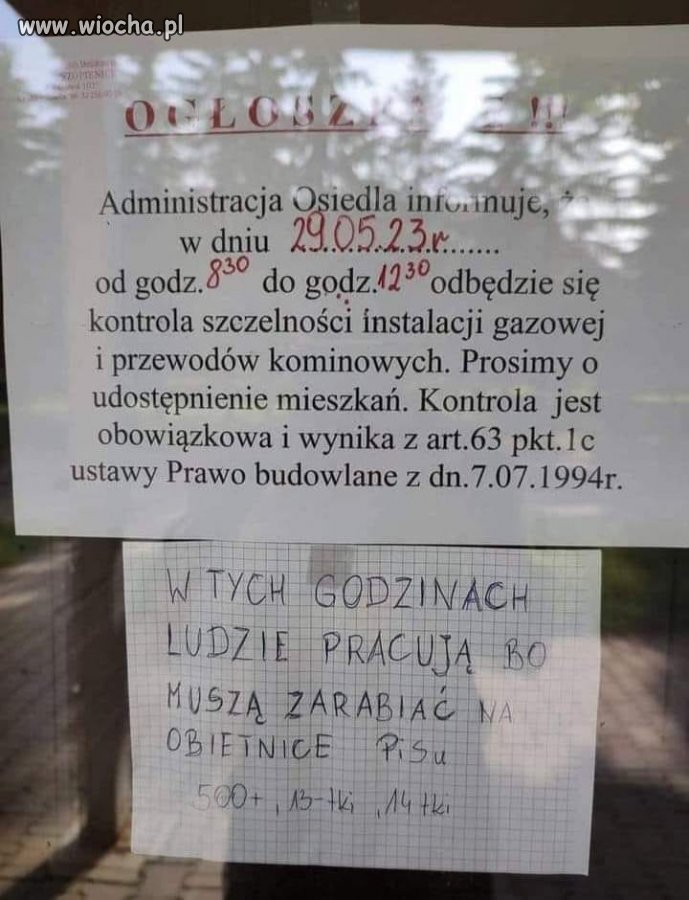 www.wiocha.pl
SZOPIENICE
OGŁOSZ !!!
Administracja Osiedla informuje,
w dniu 29.05.23r.......
od godz.8³⁰ do godz.12³⁰ odbędzie się
kontrola szczelności instalacji gazowej
i przewodów kominowych. Prosimy o
udostępnienie mieszkań. Kontrola jest
obowiązkowa i wynika z art.63 pkt.1c
ustawy Prawo budowlane z dn.7.07.1994r.
W TYCH GODZINACH
LUDZIE PRACUJĄ BO
MUSZĄ ZARABIAĆ NA
OBIETNICE PiSu
500+, 13-tki, 14tki